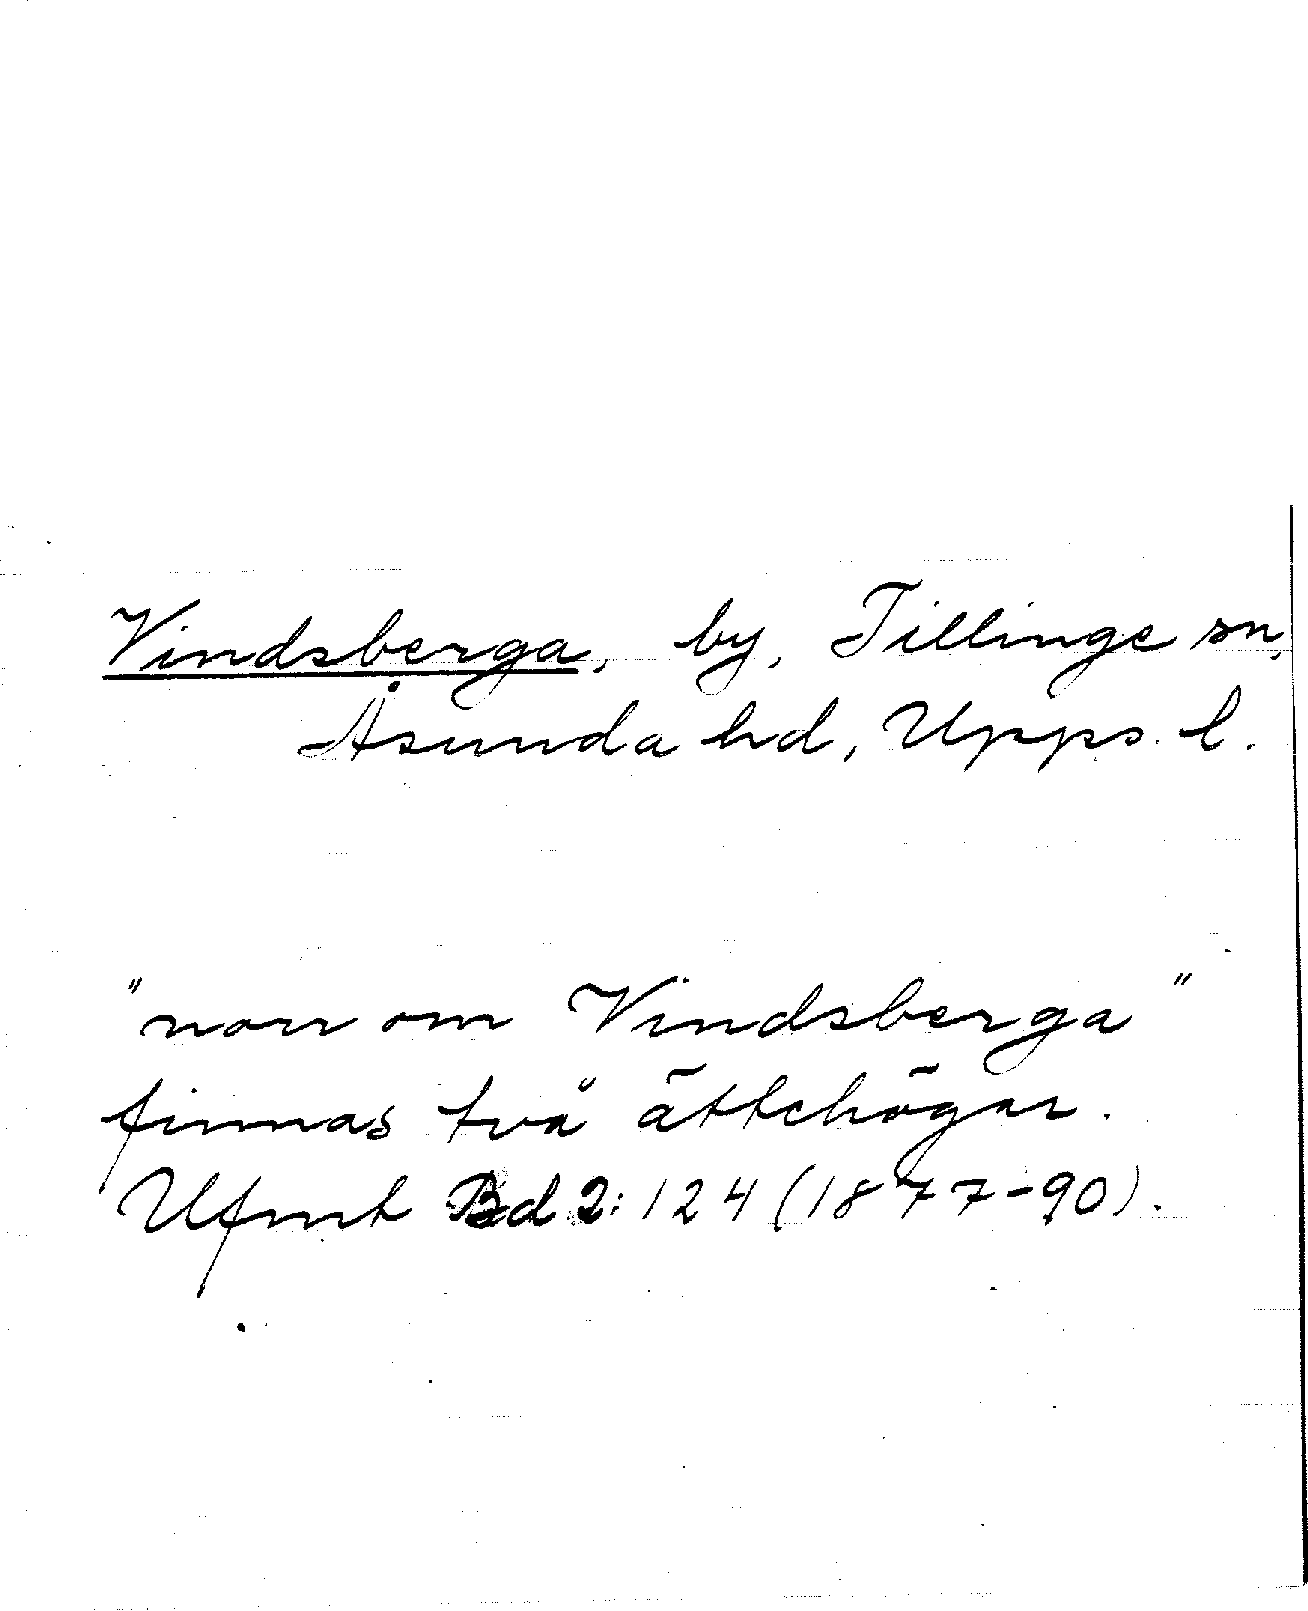 Vindsberga, by, Tillinge sn,
Åsunda hd, Upps. l.
"norr om Vindsberga"
finnas två ättehögar.
Ufmt Bd 2:124 (1877-90).